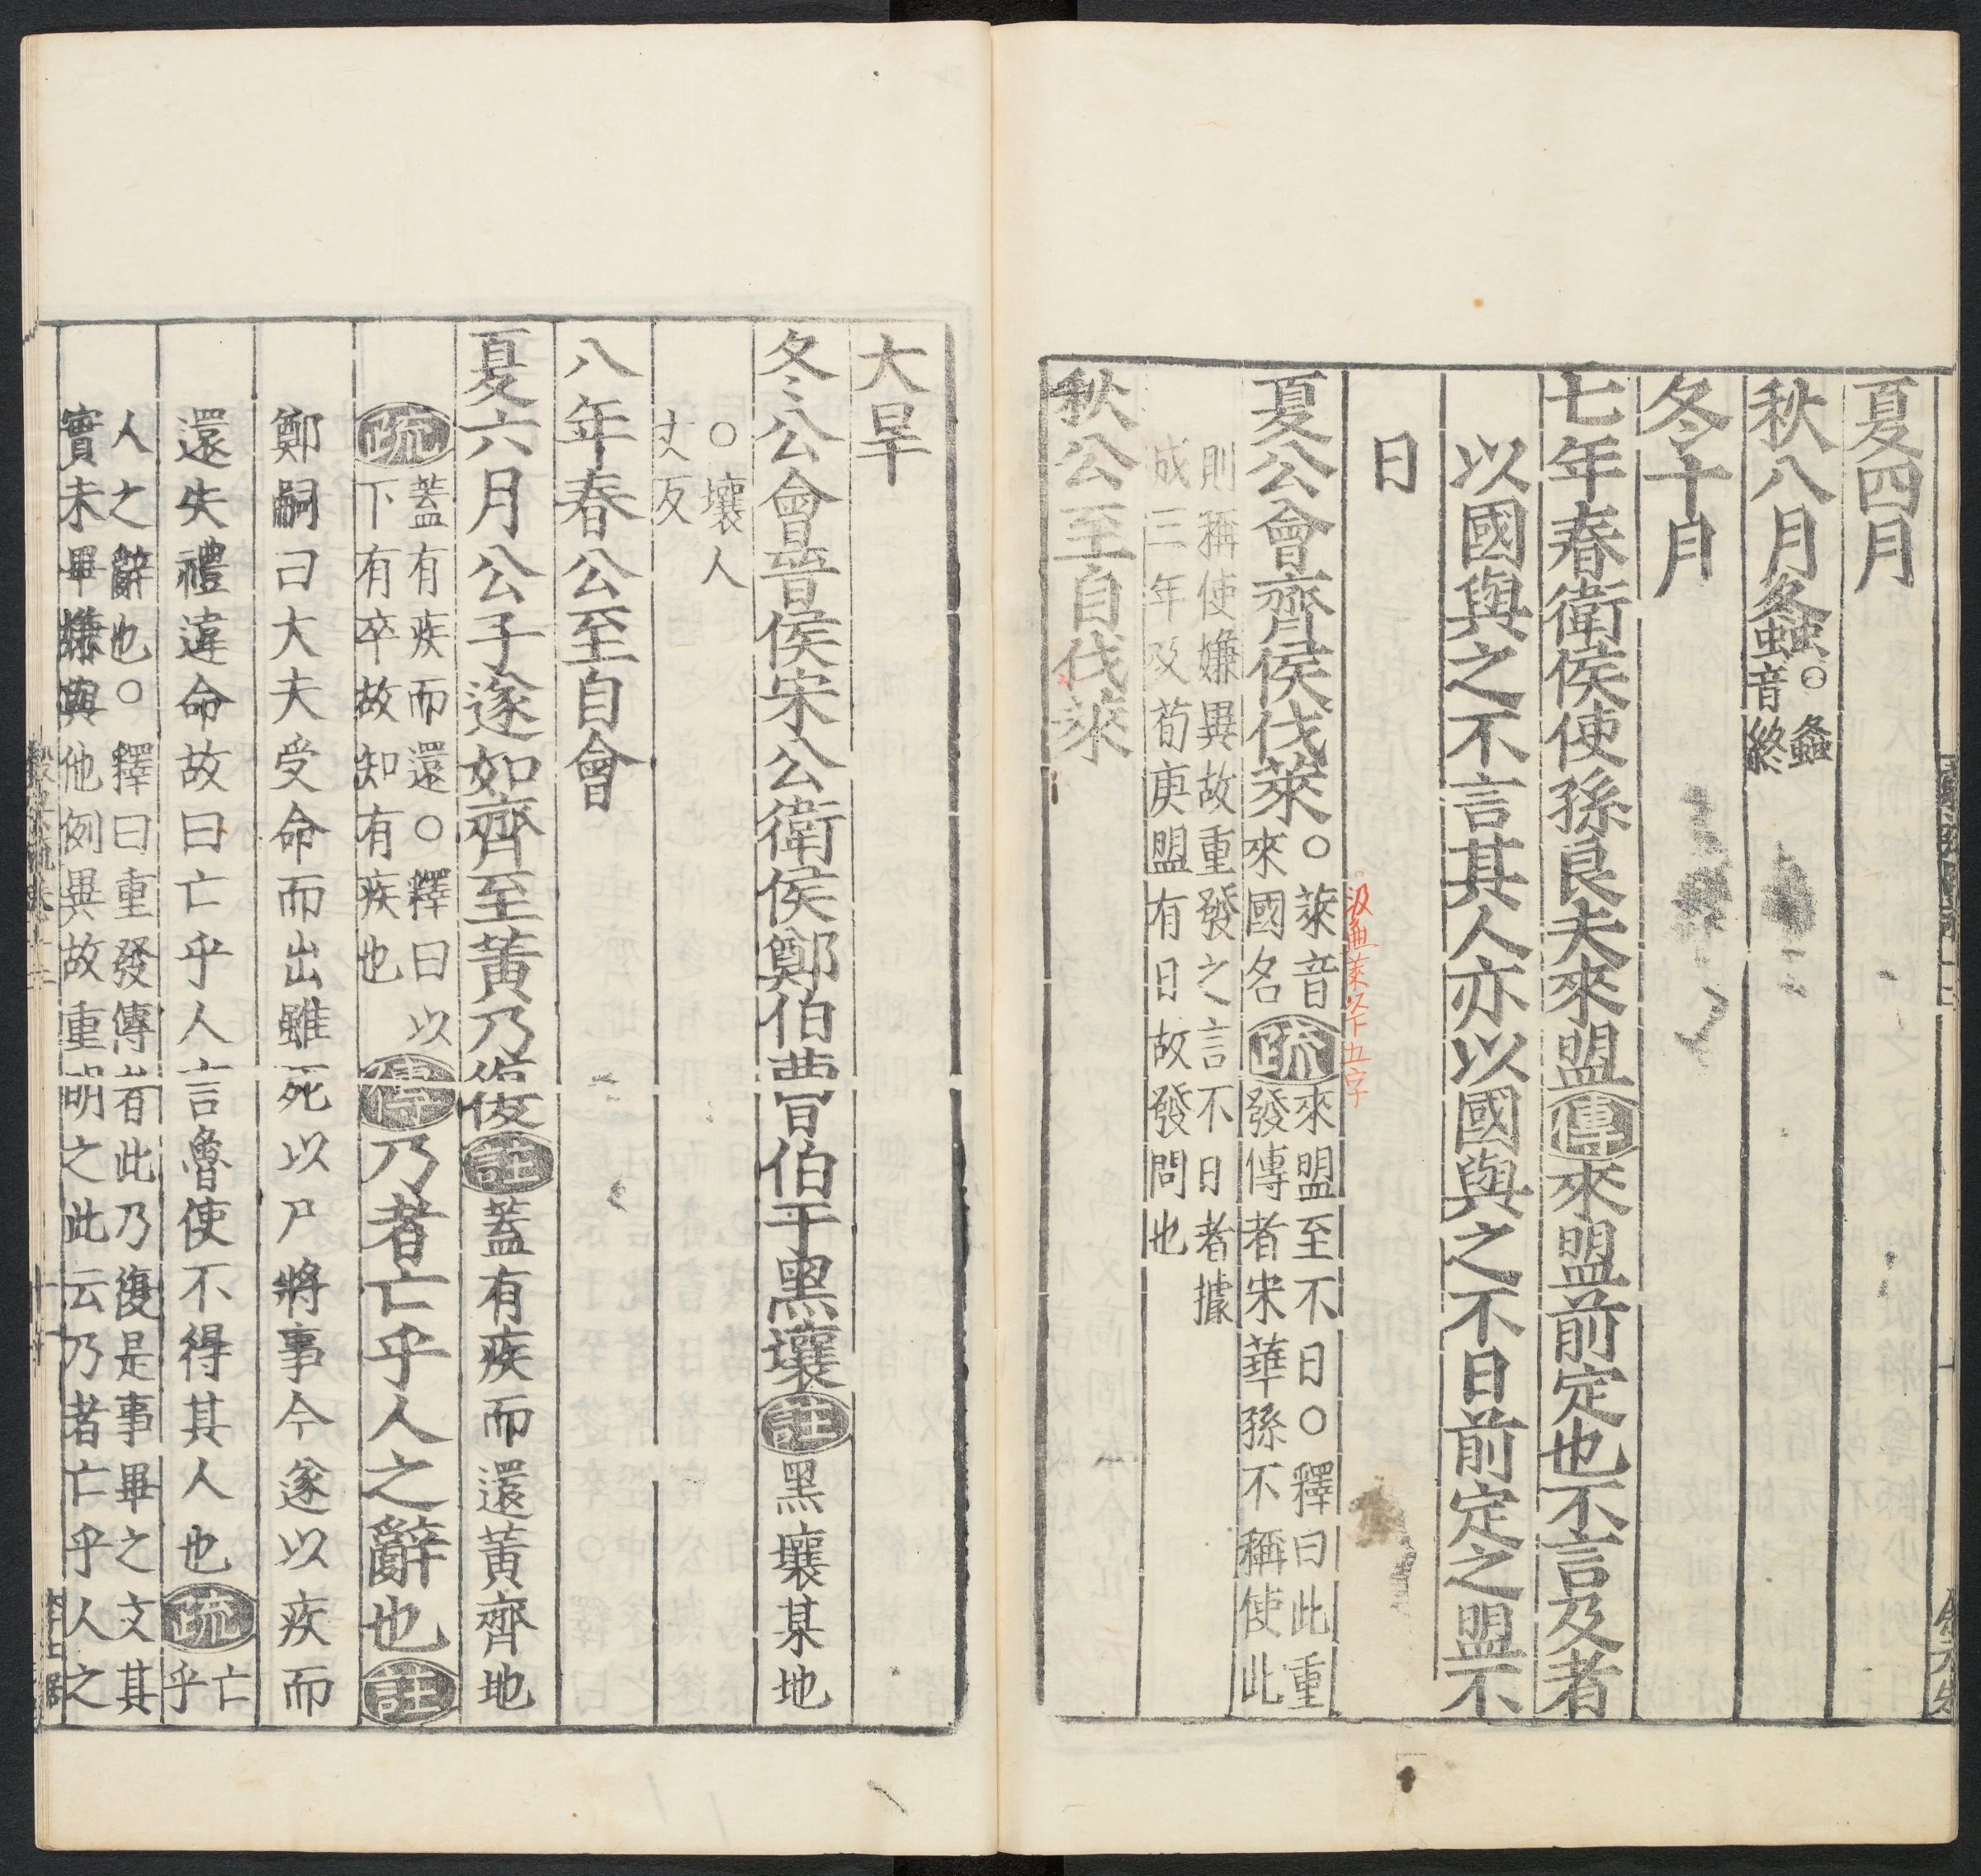 夏四月
秋八月螽○螽音終
冬十月
七年春衛侯使孫良夫來盟傳來盟前定也不言及者
以國與之不言其人亦以國與之不日前定之盟不
日
汲無萊以下五字
夏公會齊侯伐萊○萊音來國名疏來盟至不日○釋曰此重發傳者宋華孫不稱使此
則稱使嫌異故重發之言不日者據成三年及荀庚盟有日故發問也
秋公至自伐萊
大旱
冬公會晉侯宋公衛侯鄭伯曹伯于黑壤註黑壤某地
○壤人丈反
八年春公至自會
夏六月公子遂如齊至黃乃復註蓋有疾而還黃齊地
疏蓋有疾而還○釋曰以下有卒故知有疾也傳乃者亡乎人之辭也註
鄭嗣曰大夫受命而出雖死以尸將事今遂以疾而
還失禮違命故曰亡乎人言魯使不得其人也疏亡乎
人之辭也○釋曰重發傳者此乃復是事畢之文其
實未畢嫌與他例異故重明之此云乃者亡乎人之